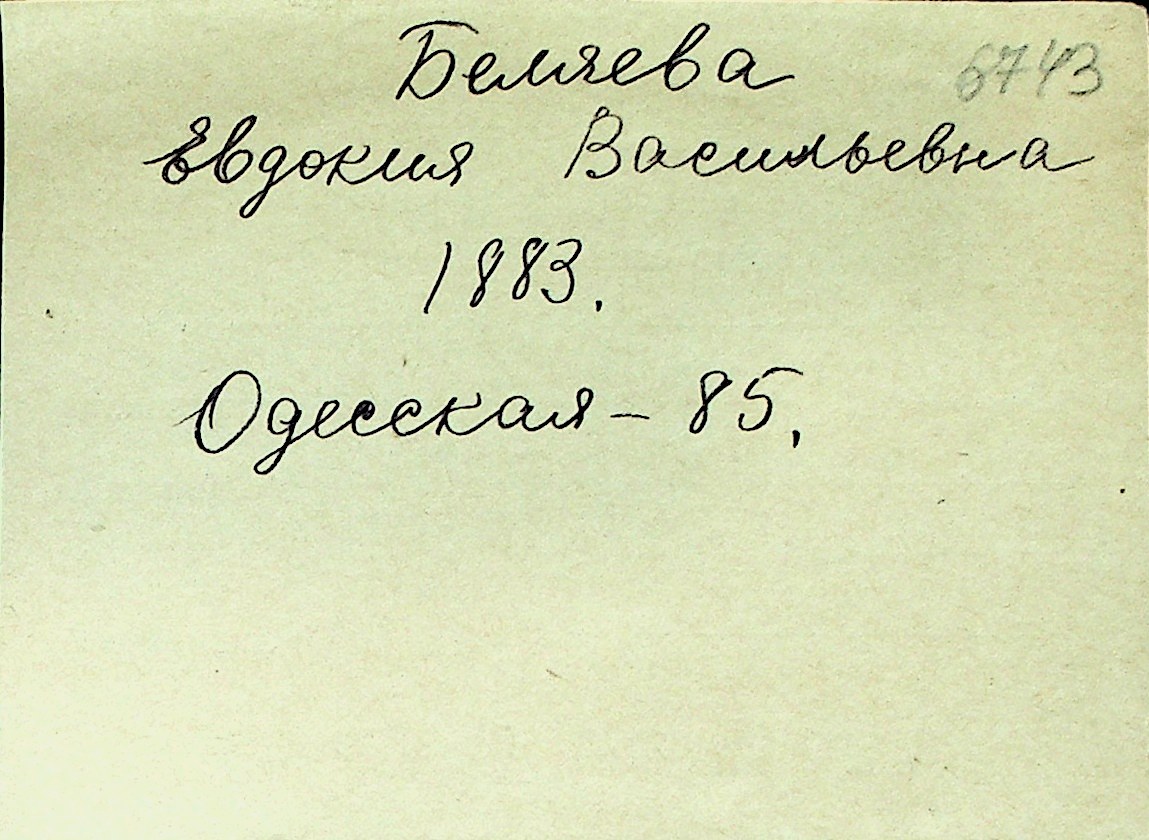 Беляева 6743
Евдокия Васильевна
1883.
Одесская - 85,